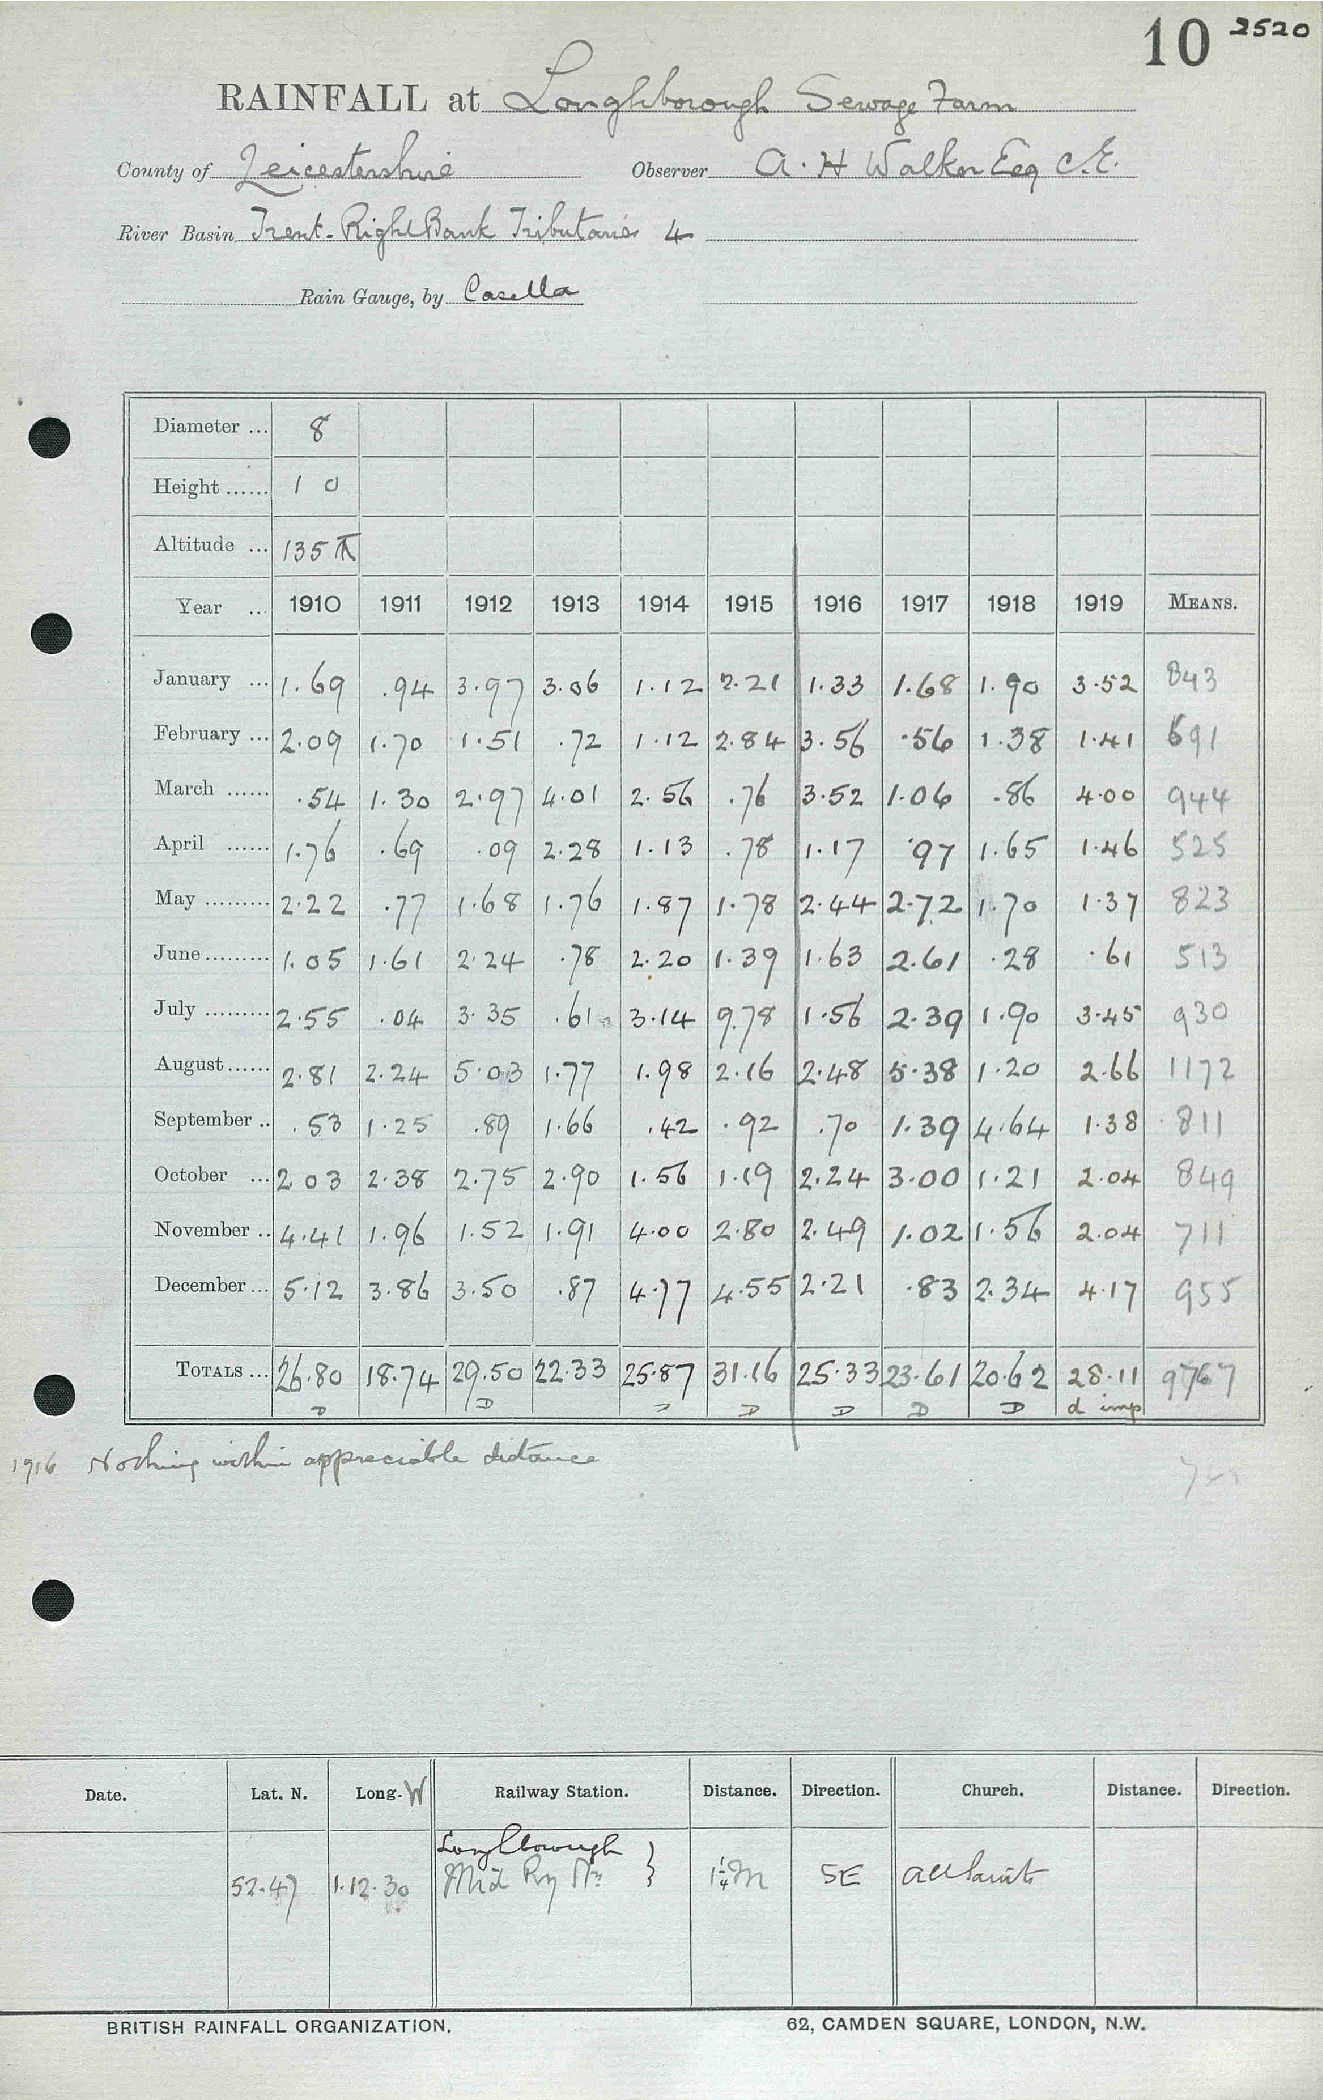 10 2520
RAINFALL at Loughborough Sewage Farm
County of Leicestershire Observer A. H Walker Esq C.E.
River Basin Trent-Right Bank Tributaries 4
Rain Gauge, by Casella
Diameter ... 8
Height ...... 1 0
Altitude ... 135 ft
Year .. 1910 1911 1912 1913 1914 1915 1916 1917 1918 1919 MEANS.
January ... 1.69 .94 3.97 3.06 1.12 2.21 1.33 1.68 1.90 3.52 843
February ... 2.09 1.70 1.51 .72 1.12 2.84 3.56 .56 1.38 1.41 691
March ...... .54 1.30 2.97 4.01 2.56 .76 3.52 1.06 .86 4.00 944
April ...... 1.76 .69 .09 2.28 1.13 .78 1.17 .97 1.65 1.46 525
May ......... 2.22 .77 1.68 1.76 1.87 1.78 2.44 2.72 1.70 1.37 823
June ......... 1.05 1.61 2.24 .78 2.20 1.39 1.63 2.61 .28 .61 513
July ......... 2.55 .04 3.35 .61 3.14 9.78 1.56 2.39 1.90 3.45 930
August ...... 2.81 2.24 5.03 1.77 1.98 2.16 2.48 5.38 1.20 2.66 1172
September .. .53 1.25 .89 1.66 .42 .92 .70 1.39 4.64 1.38 811
October ... 2 03 2.38 2.75 2.90 1.56 1.19 2.24 3.00 1.21 2.04 849
November .. 4.41 1.96 1.52 1.91 4.00 2.80 2.49 1.02 1.56 2.04 711
December ... 5.12 3.86 3.50 .87 4.77 4.55 2.21 .83 2.34 4.17 955
TOTALS ... 26.80 18.74 29.50 22.33 25.87 31.16 25.33 23.61 20.62 28.11 9767
D D D D D D D d imp
1916 Nothing within appreciable distance
Date. Lat. N. Long. W Railway Station. Distance. Direction. Church. Distance. Direction.
Loughborough
52.47 1.12.30 Mid Ry Stn 1¼ M SE All Saints
BRITISH RAINFALL ORGANIZATION. 62, CAMDEN SQUARE, LONDON, N.W.